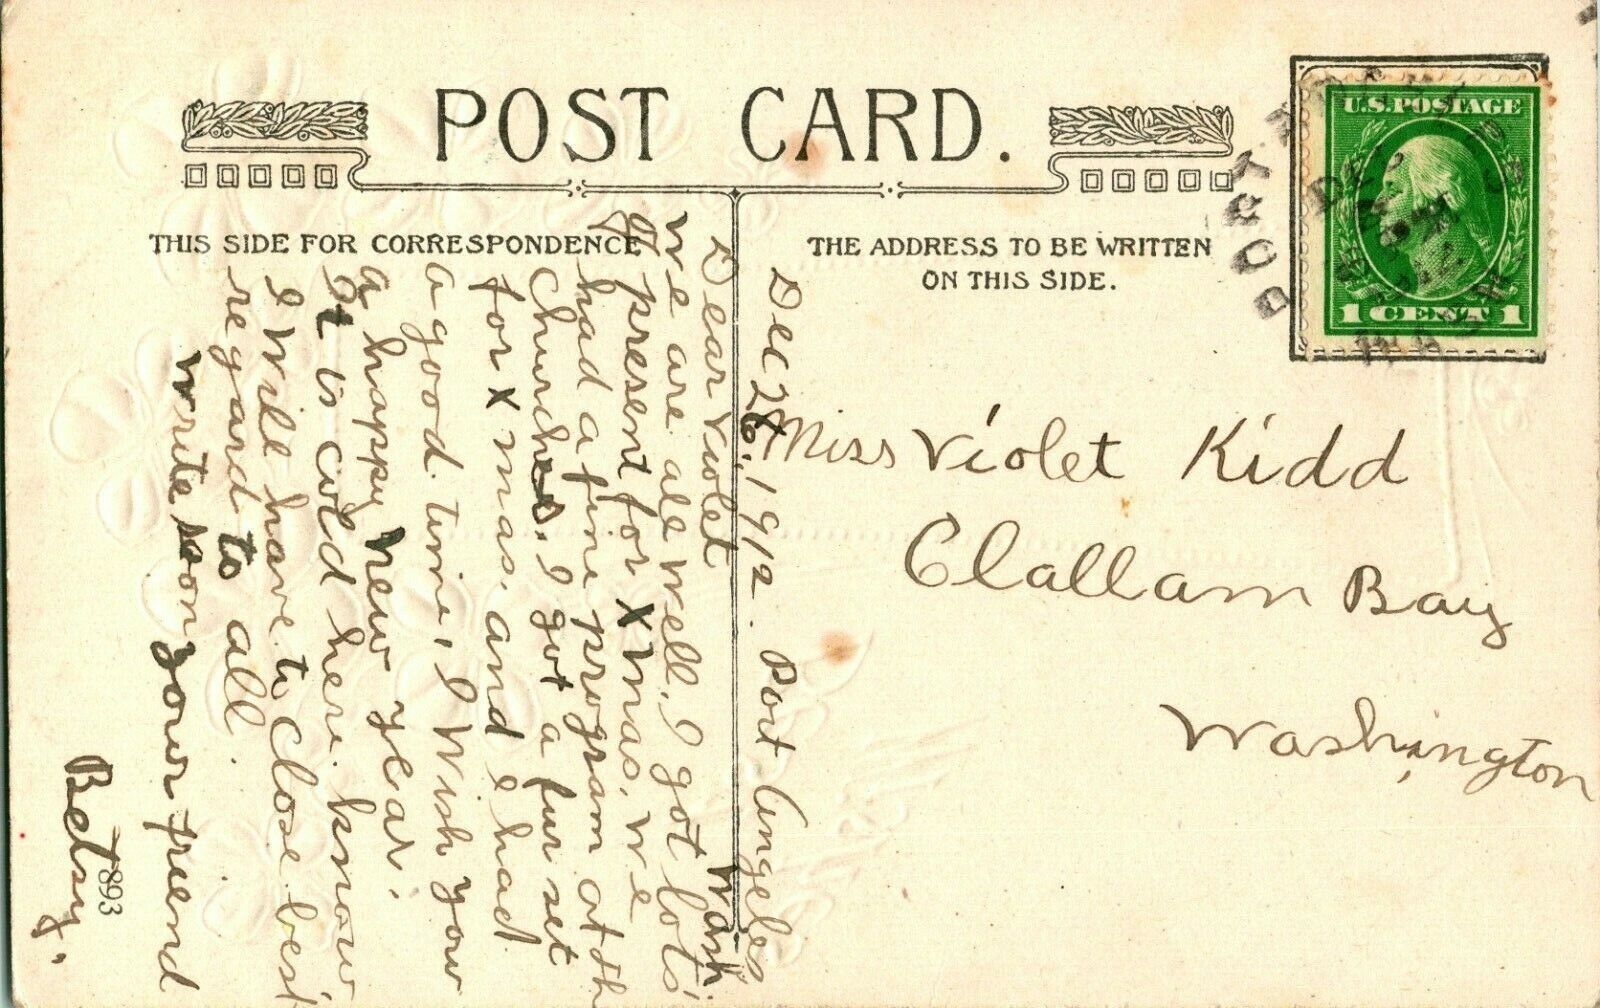 POST CARD.
THIS SIDE FOR CORRESPONDENCE
THE ADDRESS TO BE WRITTEN
ON THIS SIDE.
U.S. POSTAGE
1 CENT 1
PORT ANGELES
DEC
WASH.
Miss Violet Kidd
Clallam Bay
Washington
Dec 26, 1912. Port Angeles
Wash
Dear Violet
we are all well, I got lots
of present for Xmas, we
had a fine program at the
Churches, I got a fur set
for Xmas, and I had
a good time, I wish you
a happy New year.
It is cold here know
I will have to close best
regard to all.
write soon your friend
Betsy.
893